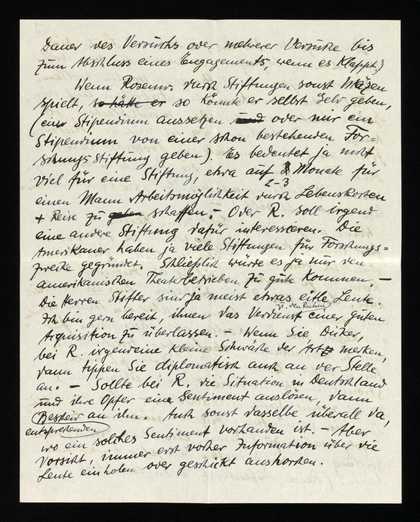 Dauer des Versuchs oder mehrerer Versuche bis
zum Abschluss eines Engagements, wenn es klappt.)
Wenn Rosenw. durch Stiftungen sonst Mäzen
spielt, so hätte er so könnte er selbst Geld geben,
(einer Stipendium aussetzen und oder nur ein
Stipendium von einer schon bestehenden For-
schungs-Stiftung geben). Es bedeutet ja nicht
viel für eine Stiftung, etwa auf 2-3 Monate für
einen Mann Arbeitsmöglichkeit durch Lebenskosten
+ Reise zu geben schaffen. – Oder R. soll irgend
eine andere Stiftung dafür interessieren. Die
Amerikaner haben ja viele Stiftungen für Forschungs-
zwecke gegründet. Schließlich würde es ja nur den
amerikanischen Theaterbetrieben zu gute kommen. –
Die Herren Stifter sind ja meist etwas eitle Leute.
Ich bin gern bereit, ihnen das Verdienst einer guten
Acquisition zu überlassen. – Wenn Sie Dicker,
bei R. irgendeine kleine Schwäche der Art merken,
dann tippen Sie diplomatisch auch an der Stelle
an. – Sollte bei R. die Situation in Deutschland
und ihre Opfer eine Sentiment auslösen, dann
an ihm. Auch sonst dasselbe überall da,
wo ein solches entsprechenden Sentiment vorhanden ist. – Aber
Vorsicht, immer erst vorher Information über die
Leute einholen oder geschickt aushorchen.